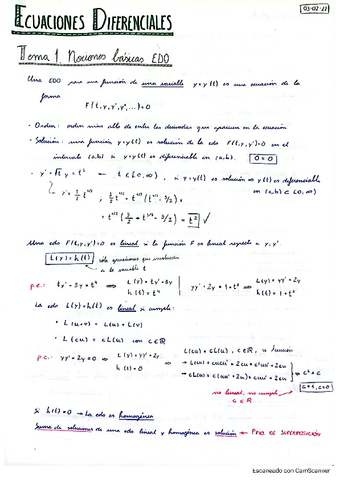 ECUACIONES DIFERENCIALES
03-02-22
Tema 1 Nociones básicas EDO
Una EDO para una función de una variable y=y(t) es una ecuación de la
forma
F(t,y,y',y'',...)=0
- Orden: orden más alto de entre las derivadas que aparecen en la ecuación
- Solución: una función y=y(t) es solución de la edo F(t,y,y')=0 en el
intervalo (a,b) si y=y(t) es diferenciable en (a,b). 0=0
si y=y(t) es solución ⇒ y(t) es diferenciable
Una edo F(t,y,y')=0 es lineal si la función F es lineal respecto a y, y'.
L(y)=h(t)
sólo operaciones que involucren
a la variable t
p.e.: ty'-3y=t⁴ ⇒ L(y)=ty'-3y
h(t)=t⁴
La edo L(y)=h(t) es lineal si cumple:
· L(u+v)=L(u)+L(v)
· L(cu)=cL(u) con c∈ℝ
p.e.: yy'-2y=0 ⇒ L(y)=yy'-2y
h(t)=0
no lineal, no cumple
c∈ℝ
Si h(t)=0 → La edo es homogénea
Suma de soluciones de una edo lineal y homogénea es solución → PPIO. DE SUPERPOSICIÓN
Escaneado con CamScanner